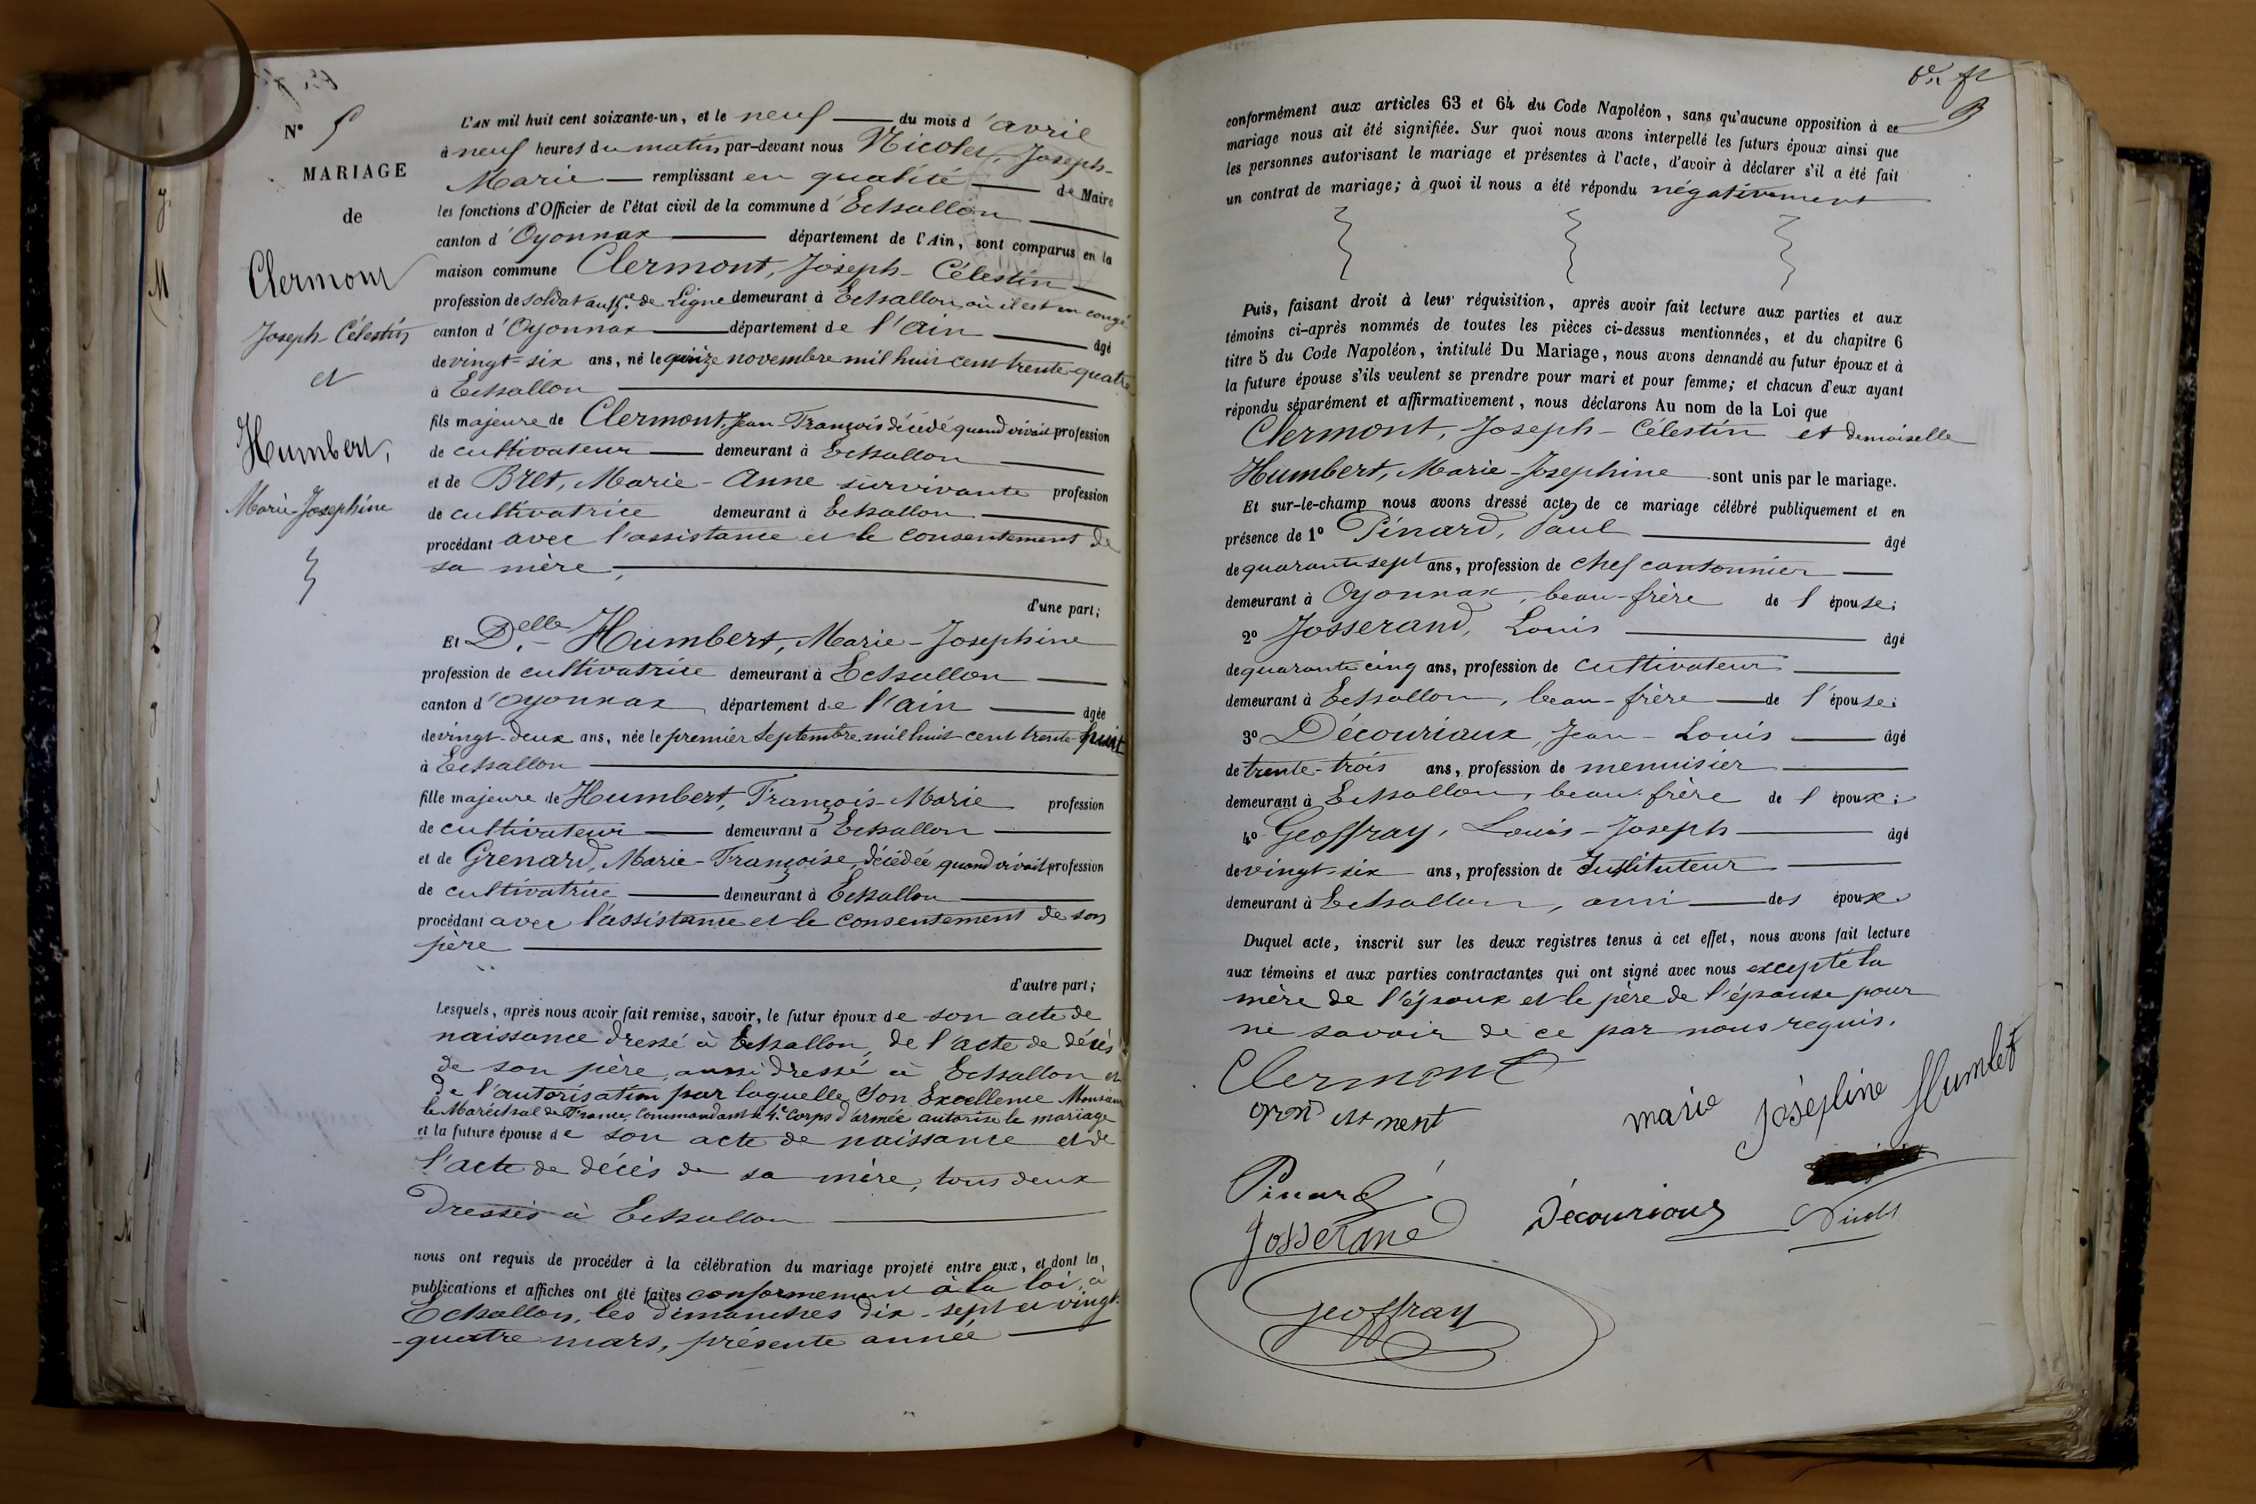 N° 5
MARIAGE
de
Clermont
Joseph-Célestin
et
Humbert,
Marie-Josephine
L'AN mil huit cent soixante-un, et le neuf du mois d'avril
à neuf heures du matin par-devant nous Nicolet, Joseph-
Marie remplissant en qualité de Maire
les fonctions d'Officier de l'état civil de la commune d'Echallon
canton d'Oyonnax département de l'Ain, sont comparus en la
maison commune Clermont, Joseph-Célestin
profession de soldat au de Ligne demeurant à Echallon où il est en congé
canton d'Oyonnax département de l'ain âgé
de vingt-six ans, né le quinze novembre mil huit cent trente-quatre
à Echallon
fils majeure de Clermont, Jean-François décédé quand vivait profession
de cultivateur demeurant à Echallon
et de Bret, Marie-Anne survivante profession
de cultivatrice demeurant à Echallon
procédant avec l'assistance et le consentement de
sa mère,
d'une part;
Et Delle Humbert, Marie-Josephine
profession de cultivatrice demeurant à Echallon
canton d'oyonnax département de l'ain âgée
de vingt-deux ans, née le premier Septembre mil huit cent trente-huit
à Echallon
fille majeure de Humbert, François-Marie profession
de cultivateur demeurant à Echallon
et de Grenard, Marie-Françoise, décédée quand vivait profession
de cultivatrice demeurant à Echallon
procédant avec l'assistance et le consentement de son
père
d'autre part;
Lesquels, après nous avoir fait remise, savoir, le futur époux de son acte de
naissance dressé à Echallon, de l'acte de décès
de son père, aussi dressé à Echallon et
de l'autorisation par laquelle Son Excellence Monsieur
le Maréchal de France, Commandant le 4e Corps d'armée autorise le mariage
et la future épouse de son acte de naissance et de
l'acte de décès de sa mère, tous deux
dressés à Echallon
nous ont requis de procéder à la célébration du mariage projeté entre eux, et dont les
publications et affiches ont été faites conformement à la loi, à
Echallon, les dimanches dix-sept et vingt-
-quatre mars, présente année
conformément aux articles 63 et 64 du Code Napoléon, sans qu'aucune opposition à ce
mariage nous ait été signifiée. Sur quoi nous avons interpellé les futurs époux ainsi que
les personnes autorisant le mariage et présentes à l'acte, d'avoir à déclarer s'il a été fait
un contrat de mariage; à quoi il nous a été répondu négativement
Puis, faisant droit à leur réquisition, après avoir fait lecture aux parties et aux
témoins ci-après nommés de toutes les pièces ci-dessus mentionnées, et du chapitre 6
titre 5 du Code Napoléon, intitulé Du Mariage, nous avons demandé au futur époux et à
la future épouse s'ils veulent se prendre pour mari et pour femme; et chacun d'eux ayant
répondu séparément et affirmativement, nous déclarons Au nom de la Loi que
Clermont, Joseph-Célestin et demoiselle
Humbert, Marie-Josephine sont unis par le mariage.
Et sur-le-champ nous avons dressé acte, de ce mariage célébré publiquement et en
présence de 1° Pinard, Paul âgé
de quarante sept ans, profession de chef cantonnier
demeurant à Oyonnax, beau-frère de l'épouse;
2° Josserand, Louis âgé
de quarante cinq ans, profession de cultivateur
demeurant à Echallon, beau-frère de l'épouse;
3° Découriaux, Jean-Louis âgé
de trente-trois ans, profession de menuisier
demeurant à Echallon, beau-frère de l'époux;
4° Geoffray, Louis-Joseph âgé
de vingt-six ans, profession de Instituteur
demeurant à Echallon, ami des époux
Duquel acte, inscrit sur les deux registres tenus à cet effet, nous avons fait lecture
aux témoins et aux parties contractantes qui ont signé avec nous excepté la
mère de l'époux et le père de l'épouse pour
ne savoir de ce par nous requis.
Clermont
marie Joséphine Humbet
Pinard
Josserand
Décourioux
Nicolet
Geoffray